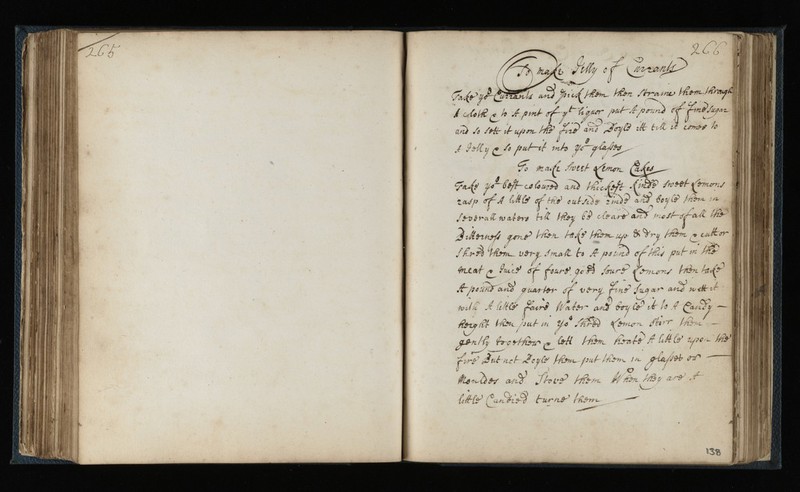 265
266
To make Jelly of Currants
Take yor Currants and prick them then straine them through
A cloth & to A pint of yt liquor put A pound of fine Sugar
and so sett it upon the fire and Boyle itt till it comes to
A Jelly & so put it into yor glasses
To make Sweet Lemon Cakes
Take yor best coloured and thickest rinde sweet Lemons
rasp of A little of the outside rinde and boyle them in
severall waters till they be cleare and most of all the
Bitterness gone then take them up & dry them & cutt or
shred them very small to A pound of this put in the
meat & Juice of foure good soure Lemons then take
A pound and quarter of very fine Sugar and wett it
with A little faire Water and boyle it to A Candy
height then put in yor shred Lemon stirr them
gently together & lett them heate A little upon the
fire But not Boyle them put them in glasses or
Mouldes and Stove them When they are A
little Candied turne them
138